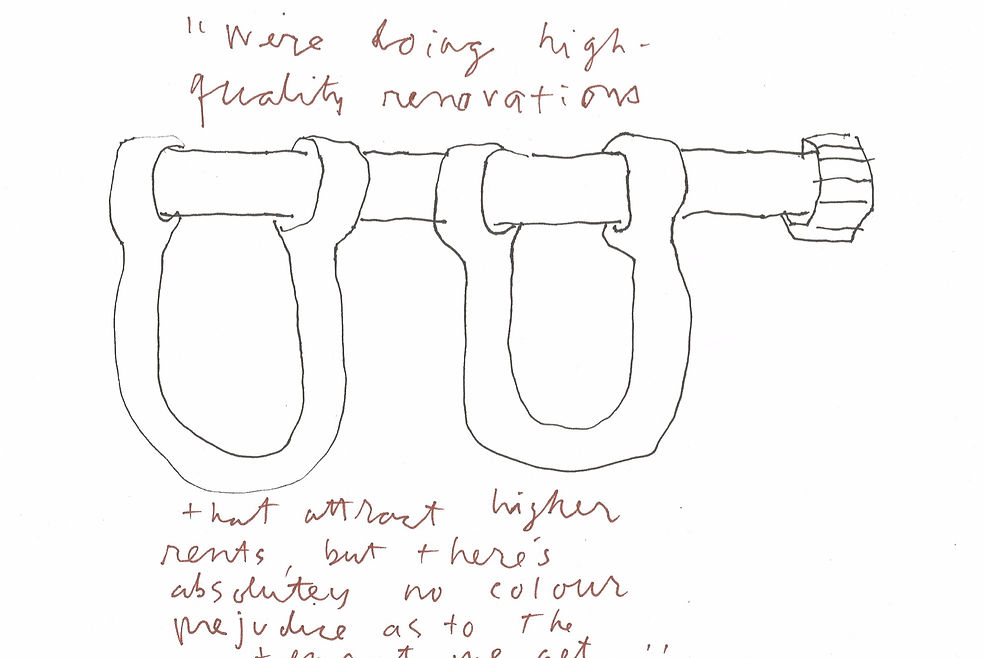 "Were doing high-
quality renovations
that attract higher
rents, but there's
absolutely no colour
prejudice as to the
we get "